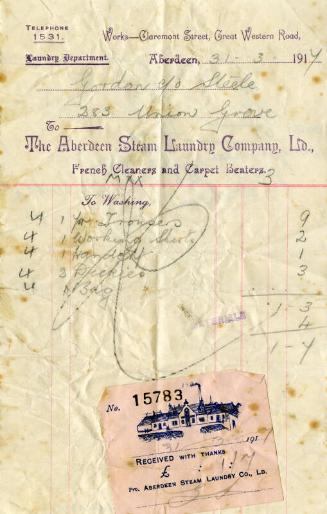 TELEPHONE
1531.
Works—Claremont Street, Great Western Road,
Laundry Department.
Aberdeen, 31 · 3 1917
Gordon c/o Steele
283 Union Grove
To
The Aberdeen Steam Laundry Company, Ld.,
French Cleaners and Carpet Beaters.
3
To Washing,
4 1 pr Trousers 9
4 1 Working Shirt 2
4 1 1
4 3 3
4 1 Bag
1 - 3
4
1 - 7
No. 15783
31 3 191
RECEIVED WITH THANKS
£ : 1 : 7
Pro. ABERDEEN STEAM LAUNDRY CO., LD.